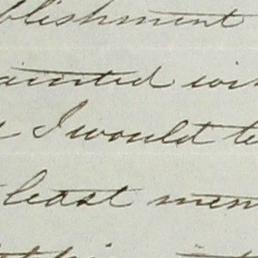 blishment
ainted wi
I would te
least mem